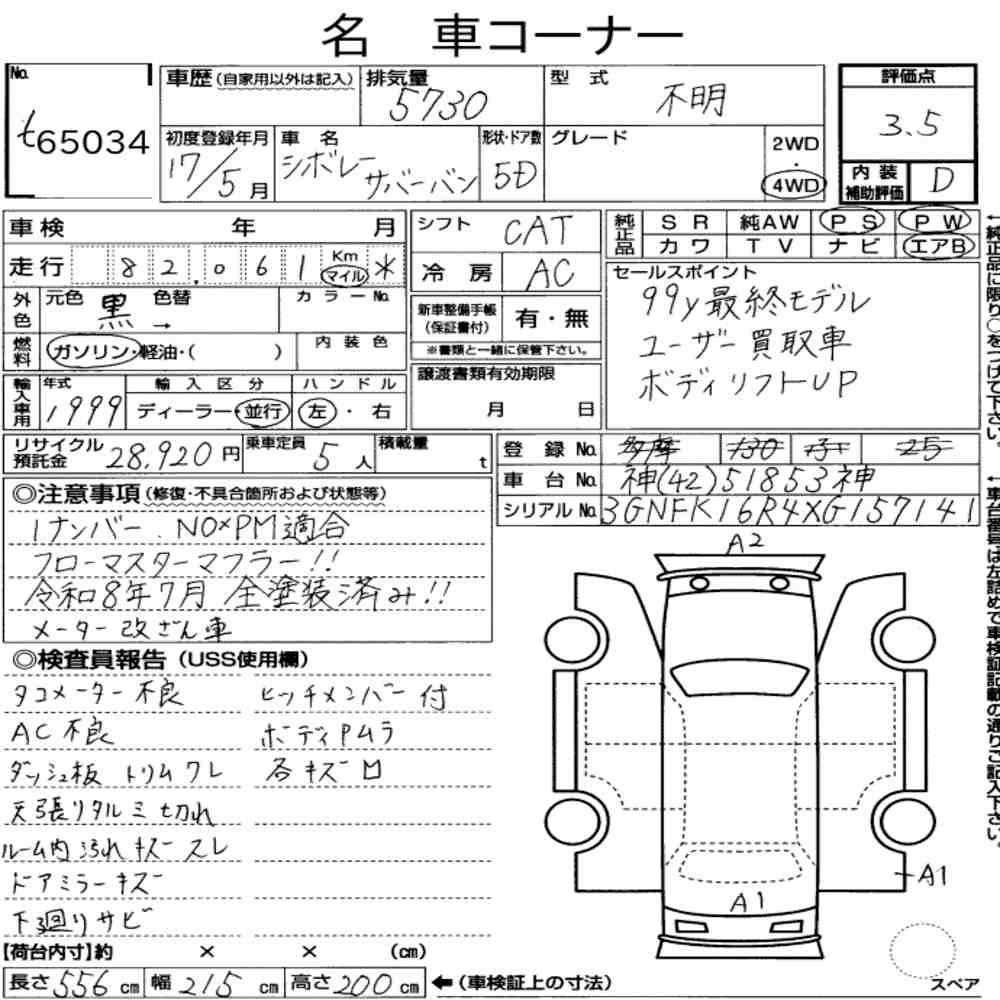 名 車コーナー
No.
t65034
車歴(自家用以外は記入)
排気量
5730
型 式
不明
評価点
3.5
初度登録年月
17/5月
車 名
シボレー
サバーバン
形状・ドア数
5D
グレード
2WD
・
4WD
内 装
補助評価
D
車検 年 月
走行 82.061 Km マイル *
外色
元色 黒 色替 →
カラーNo.
燃料
ガソリン・軽油・( )
内 装 色
輸入車用
年式
1999
輸 入 区 分
ディーラー・並行
ハ ン ド ル
左・右
シフト
CAT
冷 房
AC
新車整備手帳
(保証書付)
有・無
※書類と一緒に保管下さい。
譲渡書類有効期限
月 日
純正品
S R 純AW P S P W
カワ T V ナビ エアB
セールスポイント
99y最終モデル
ユーザー買取車
ボディリフトUP
←純正品に限り○をつけて下さい。
リサイクル
預託金
28,920円
乗車定員
5人
積載量
t
登 録 No. 多摩 130 25
車 台 No. 神(42)51853神
シリアルNo. 3GNFK16R4XG157141
←車台番号は左詰めで車検証記載の通りご記入下さい。
◎注意事項(修復・不具合箇所および状態等)
1ナンバー. NO×PM適合
フローマスターマフラー!!
令和8年7月 全塗装済み!!
メーター改ざん車
◎検査員報告(USS使用欄)
タコメーター不良
AC不良
ダッシュ板 トリムワレ
天張リタルミ切れ
ルーム内汚れキズスレ
ドアミラーキズ
下廻リサビ
ヒッチメンバー付
ボディPムラ
各キズ凹
A2
A1
A1
スペア
【荷台内寸】約 × × (cm)
長さ556cm 幅215cm 高さ200cm ←(車検証上の寸法)